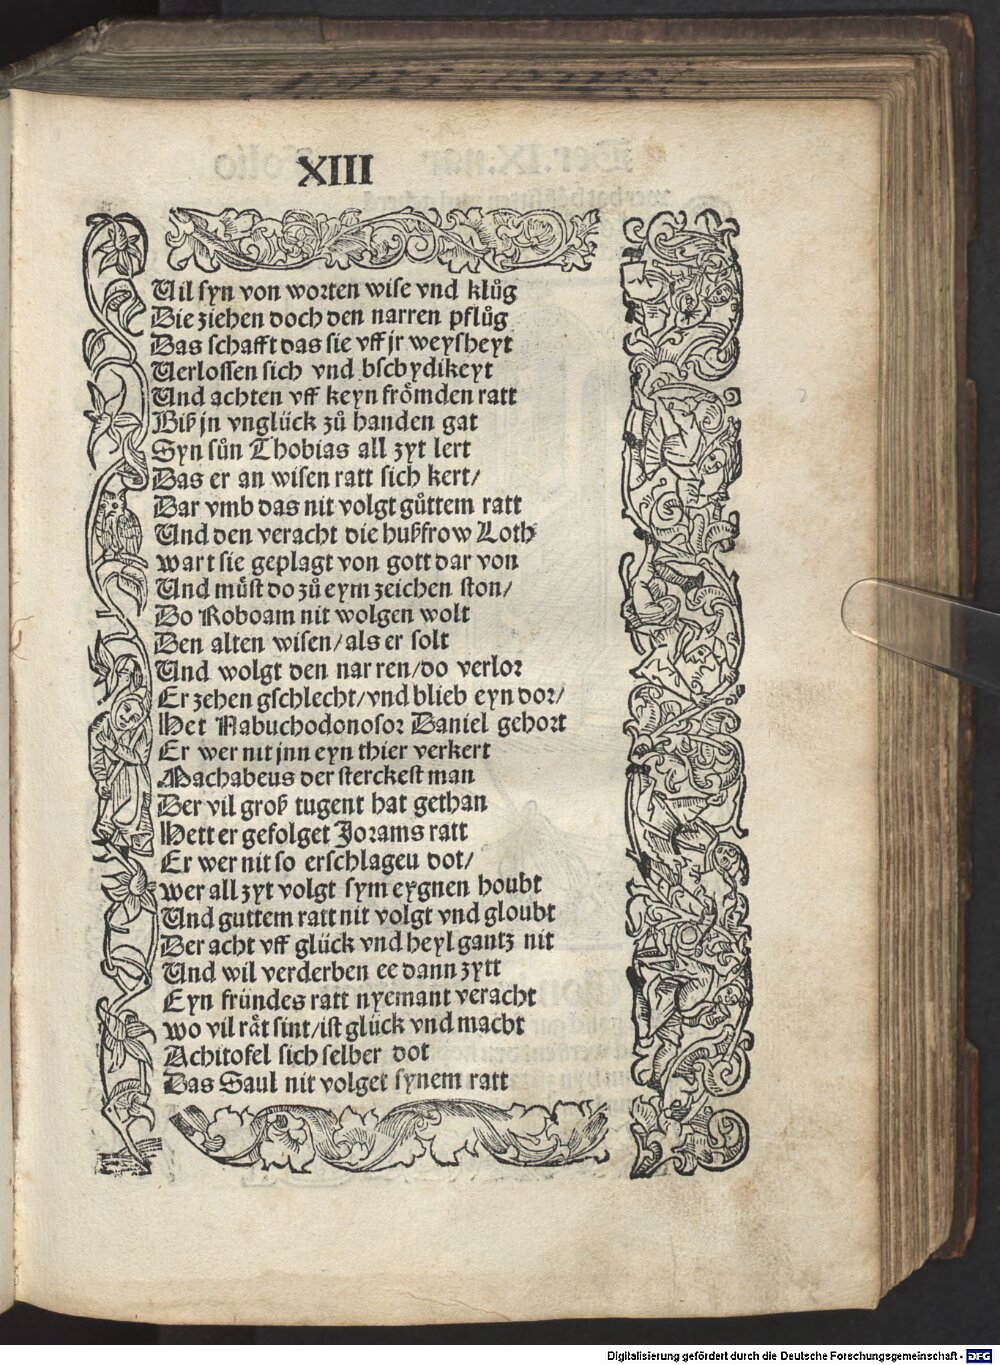 XIII
Uil syn von worten wise vnd klůg
Die ziehen doch den narren pflůg
Das schafft das sie vff jr weysheyt
Verlossen sich vnd bschydikeyt
Und achten vff keyn frömden ratt
Biß jn vnglück zů handen gat
Syn sůn Thobias all zyt lert
Das er an wisen ratt sich kert/
Dar vmb das nit volgt gůttem ratt
Und den veracht die hußfrow Loth
wart sie geplagt von gott dar von
Und můst do zů eym zeichen ston/
Do Roboam nit wolgen wolt
Den alten wisen/als er solt
Und wolgt den narren/do verlor
Er zehen gschlecht/vnd blieb eyn dor/
Het Nabuchodonosor Daniel gehort
Er wer nit jnn eyn thier verkert
Machabeus der sterckest man
Der vil groß tugent hat gethan
Hett er gefolget Jorams ratt
Er wer nit so erschlageu dot/
wer all zyt volgt sym eygnen houbt
Und guttem ratt nit volgt vnd gloubt
Der acht vff glück vnd heyl gantz nit
Und wil verderben ee dann zytt
Eyn fründes ratt nyemant veracht
wo vil rät sint/ist glück vnd macht
Achitofel sich selber dot
Das Saul nit volget synem ratt
Digitalisierung gefördert durch die Deutsche Forschungsgemeinschaft - DFG